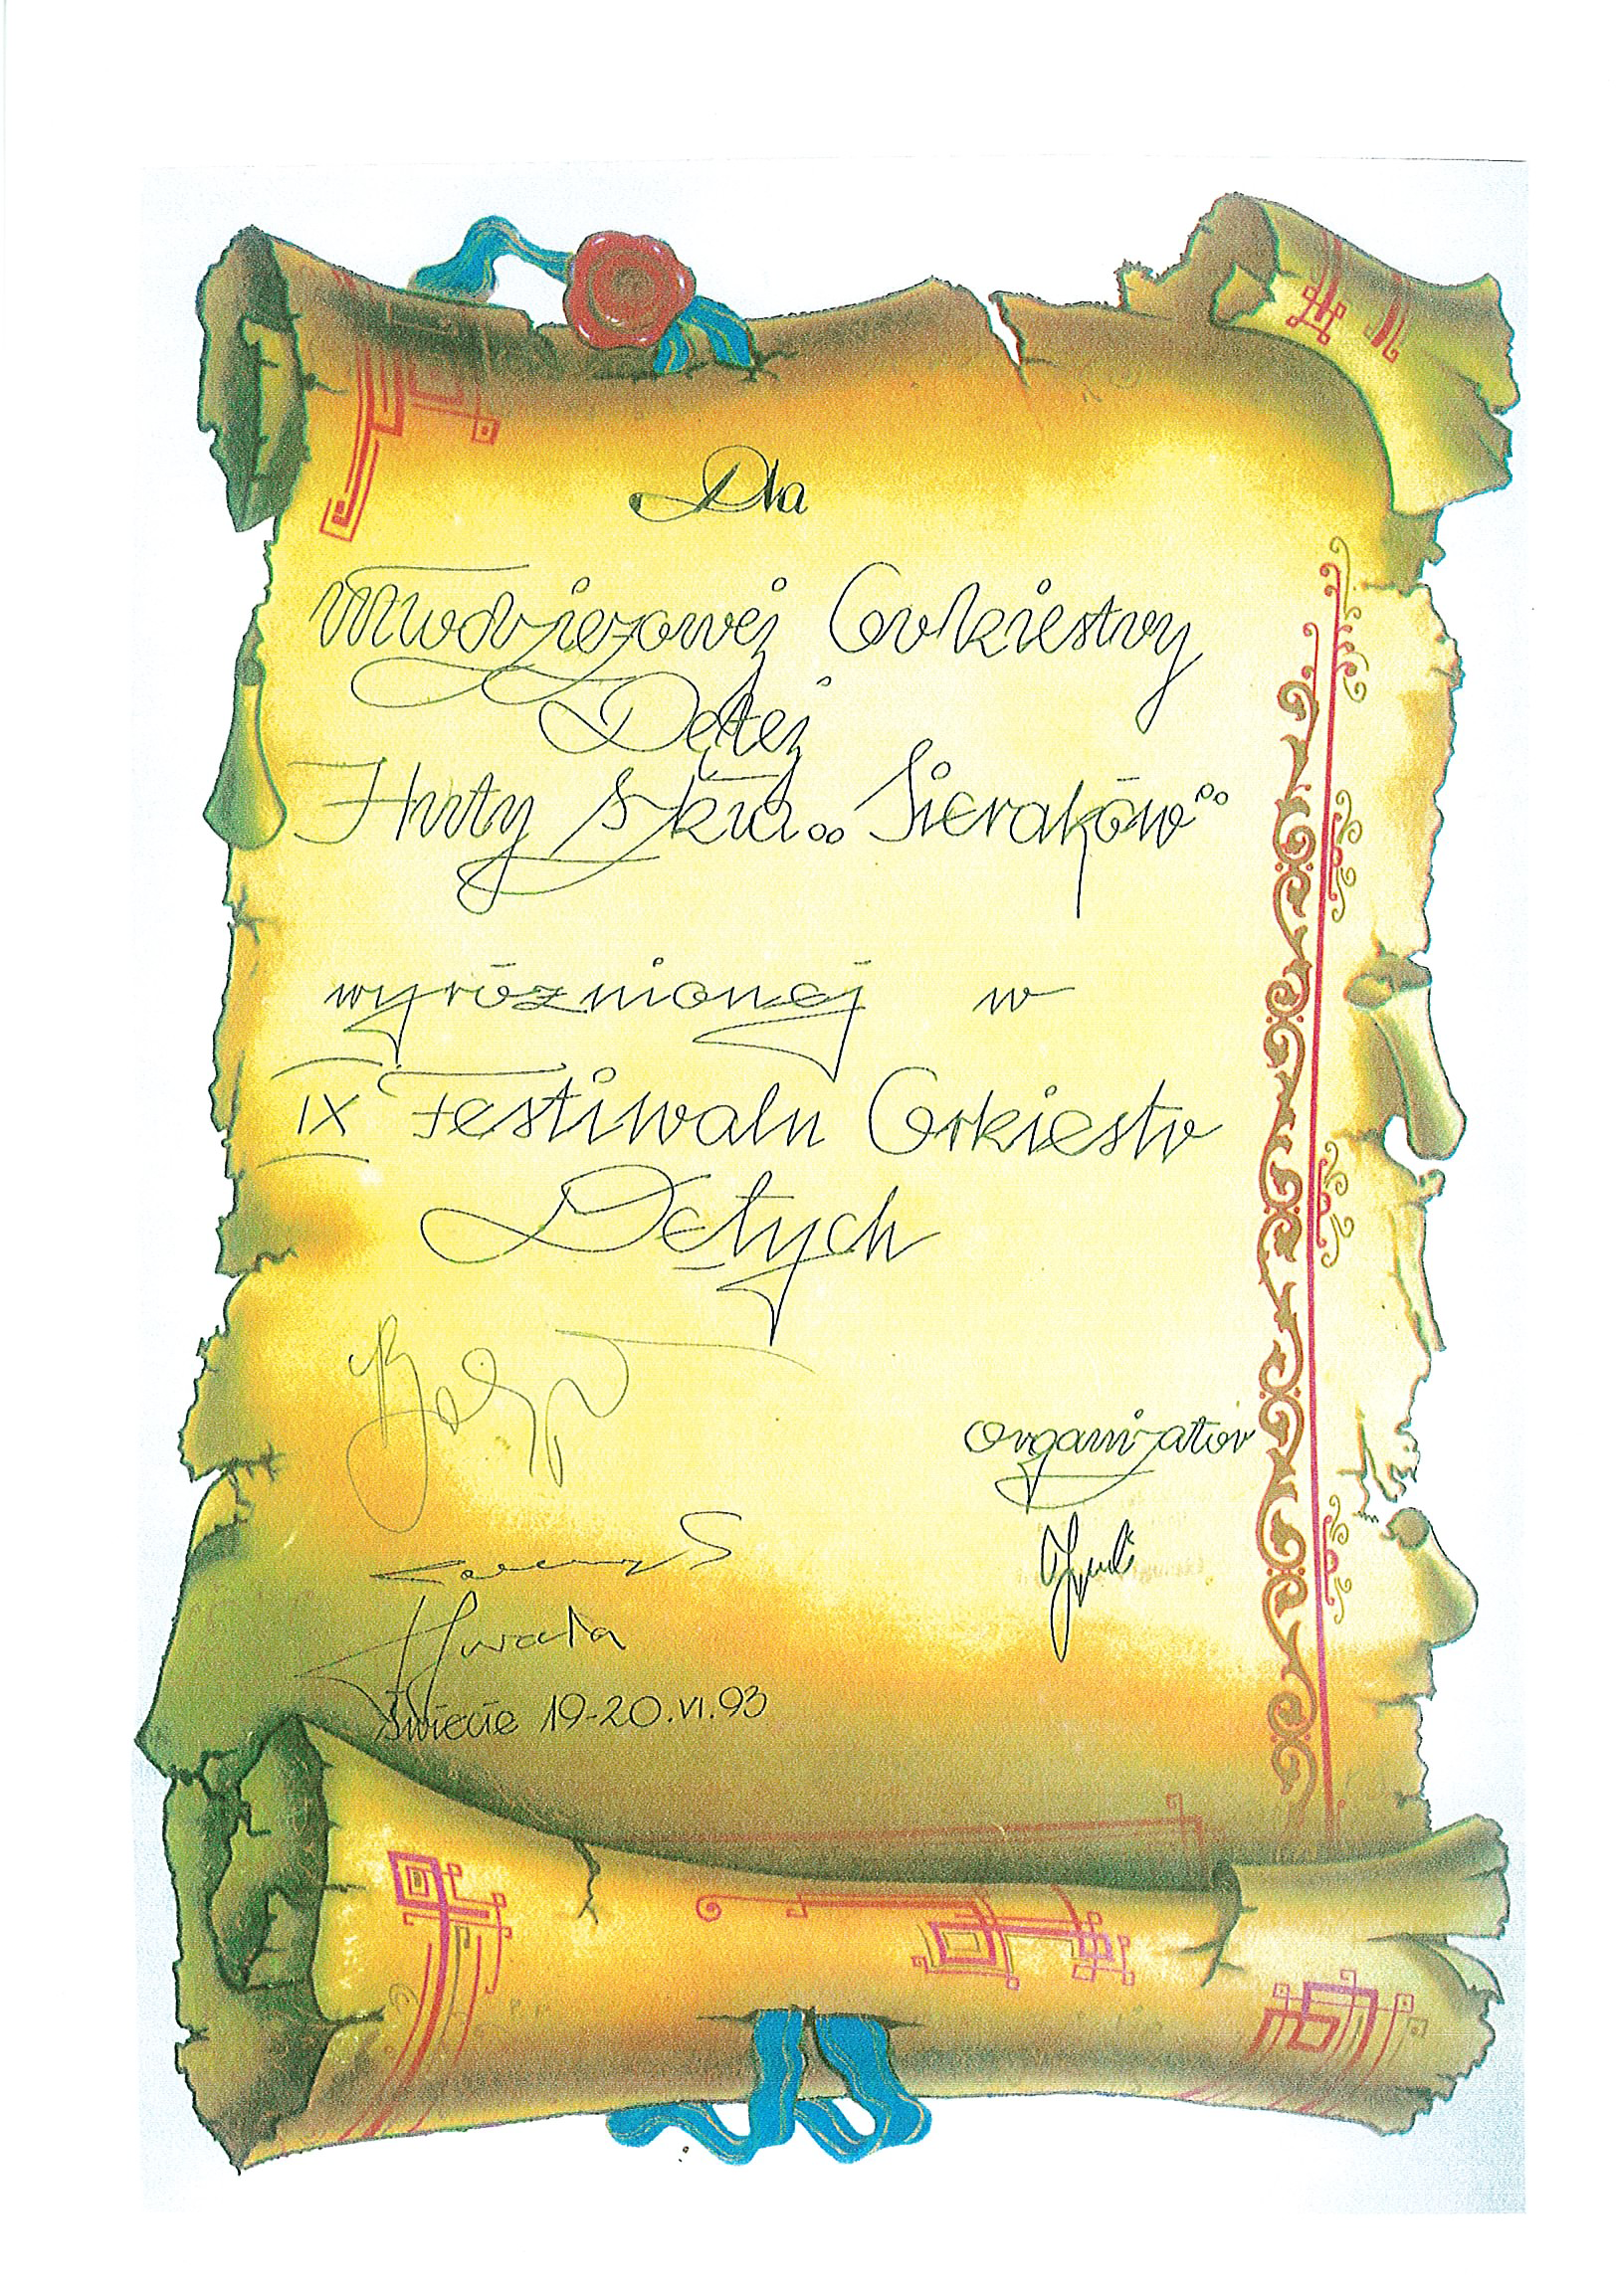 Dla
Młodzieżowej Orkiestry
Dętej
Huty Szkła „Sieraków”
wyróżnionej w
IX Festiwalu Orkiestr
Dętych
organizator
Świecie 19-20.VI.93